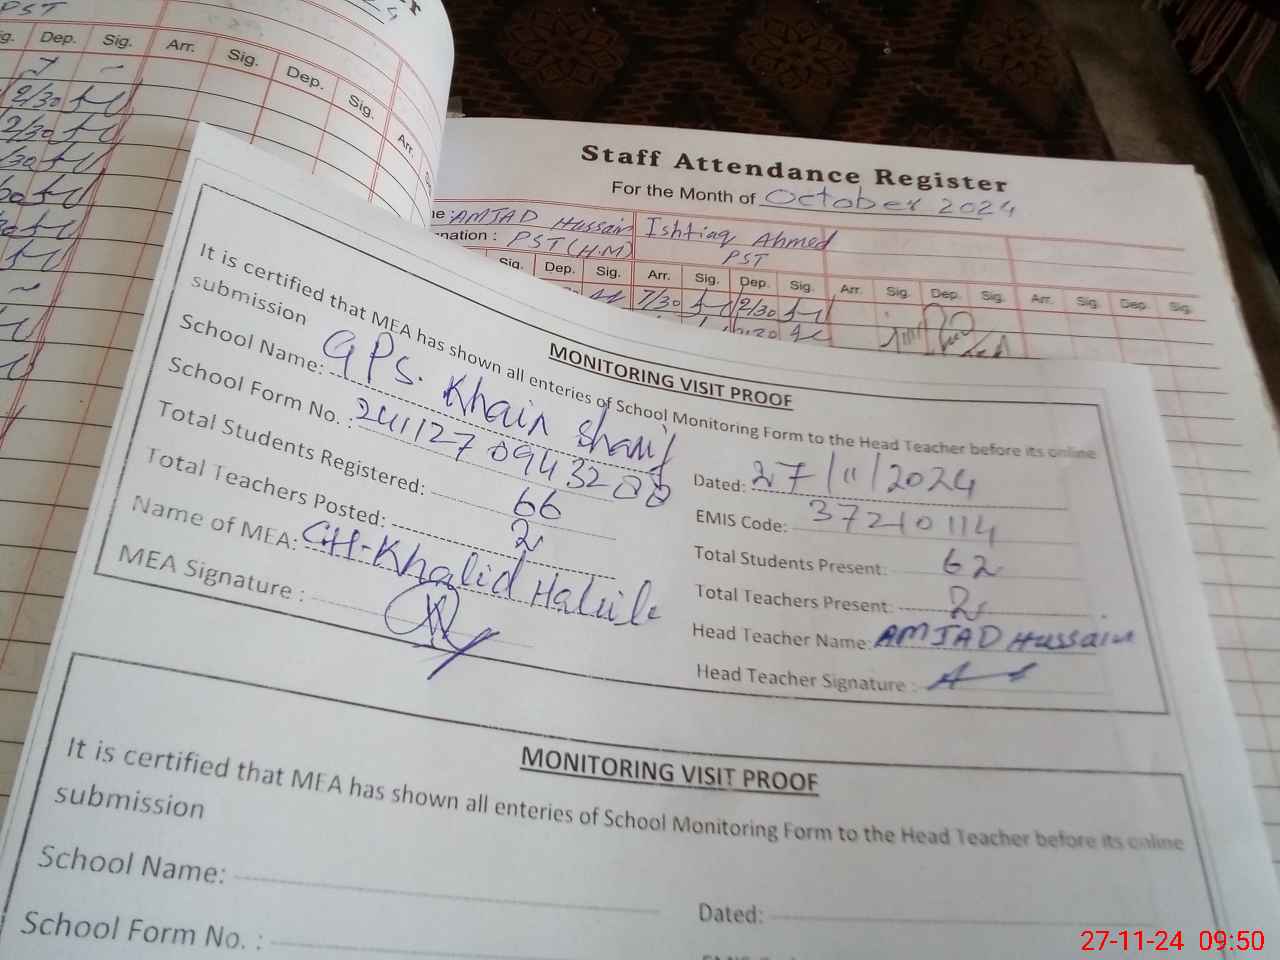 PST
Dep. Sig. Arr. Sig. Dep. Sig. Arr.
2/30
2/30
Staff Attendance Register
For the Month of October 2024
AMJAD Hussain Ishtiaq Ahmed
PST (H.M) PST
Sig. Dep. Sig. Arr. Sig. Dep. Sig. Arr. Sig. Dep. Sig. Arr. Sig. Dep. Sig.
7/30 2/30
MONITORING VISIT PROOF
It is certified that MEA has shown all enteries of School Monitoring Form to the Head Teacher before its online
submission
School Name: GPS. Khair Sharif
Dated: 27/11/2024
School Form No. : 24112709943288
EMIS Code: 37210114
Total Students Registered: 66
Total Students Present: 62
Total Teachers Posted: 2
Total Teachers Present: 2
Name of MEA: CH-Khalid Habib
Head Teacher Name: AMJAD Hussain
MEA Signature :
Head Teacher Signature :
MONITORING VISIT PROOF
It is certified that MEA has shown all enteries of School Monitoring Form to the Head Teacher before its online
submission
School Name:
Dated:
School Form No. :
27-11-24 09:50